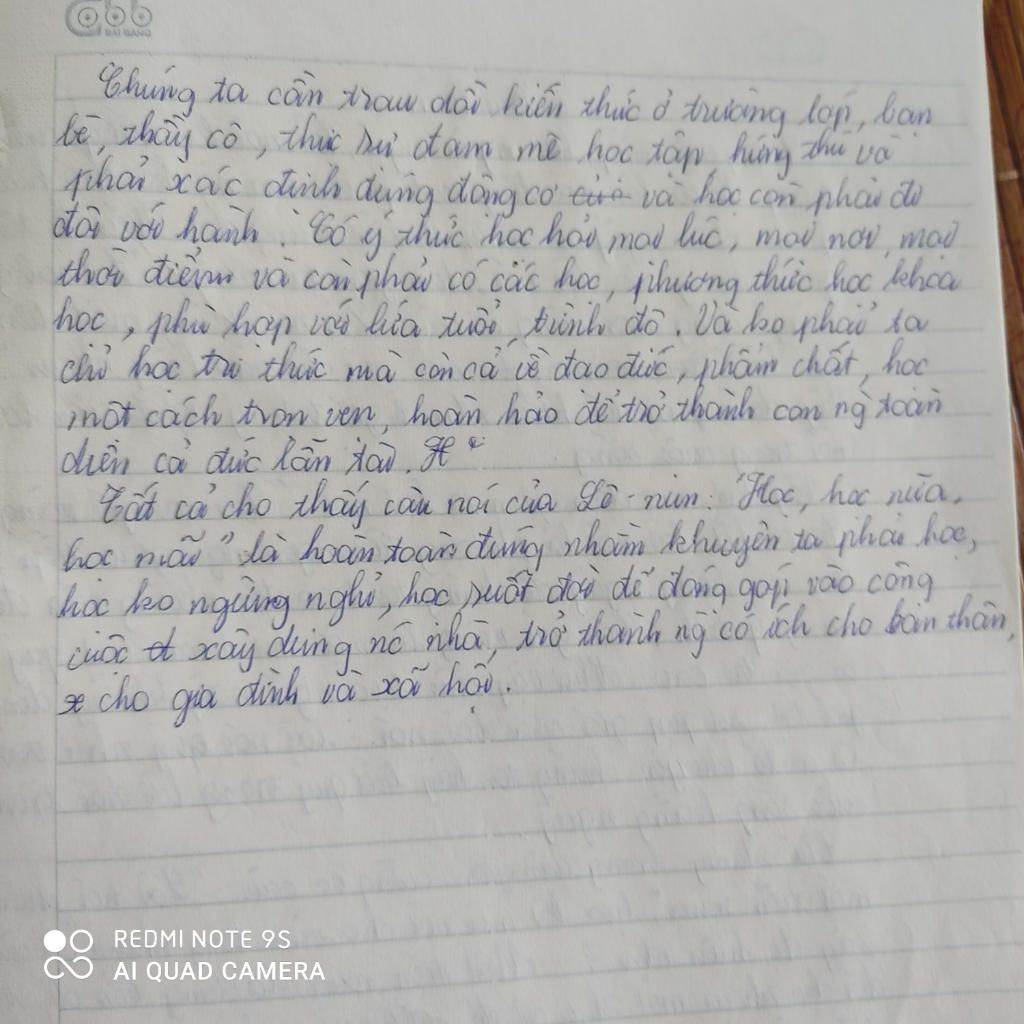 ĐẠI BÀNG
Chúng ta cần trau dồi kiến thức ở trường lớp, bạn
bè, thầy cô, thực sự đam mê học tập hứng thú và
phải xác định đúng động cơ và học còn phải đi
đôi với hành. Có ý thức học hỏi mọi lúc, mọi nơi, mọi
thời điểm và còn phải có các học, phương thức học khoa
học, phù hợp với lứa tuổi, trình độ. Và ko phải ta
chỉ học tri thức mà còn cả về đạo đức, phẩm chất, học
một cách trọn vẹn, hoàn hảo để trở thành con ng toàn
diện cả đức lẫn tài.
Tất cả cho thấy câu nói của Lê-nin: "Học, học nữa,
học mãi" là hoàn toàn đúng nhằm khuyên ta phải học,
học ko ngừng nghỉ, học suốt đời để đóng góp vào công
cuộc xây dựng nc nhà, trở thành ng có ích cho bản thân,
cho gia đình và xã hội.
REDMI NOTE 9S
AI QUAD CAMERA